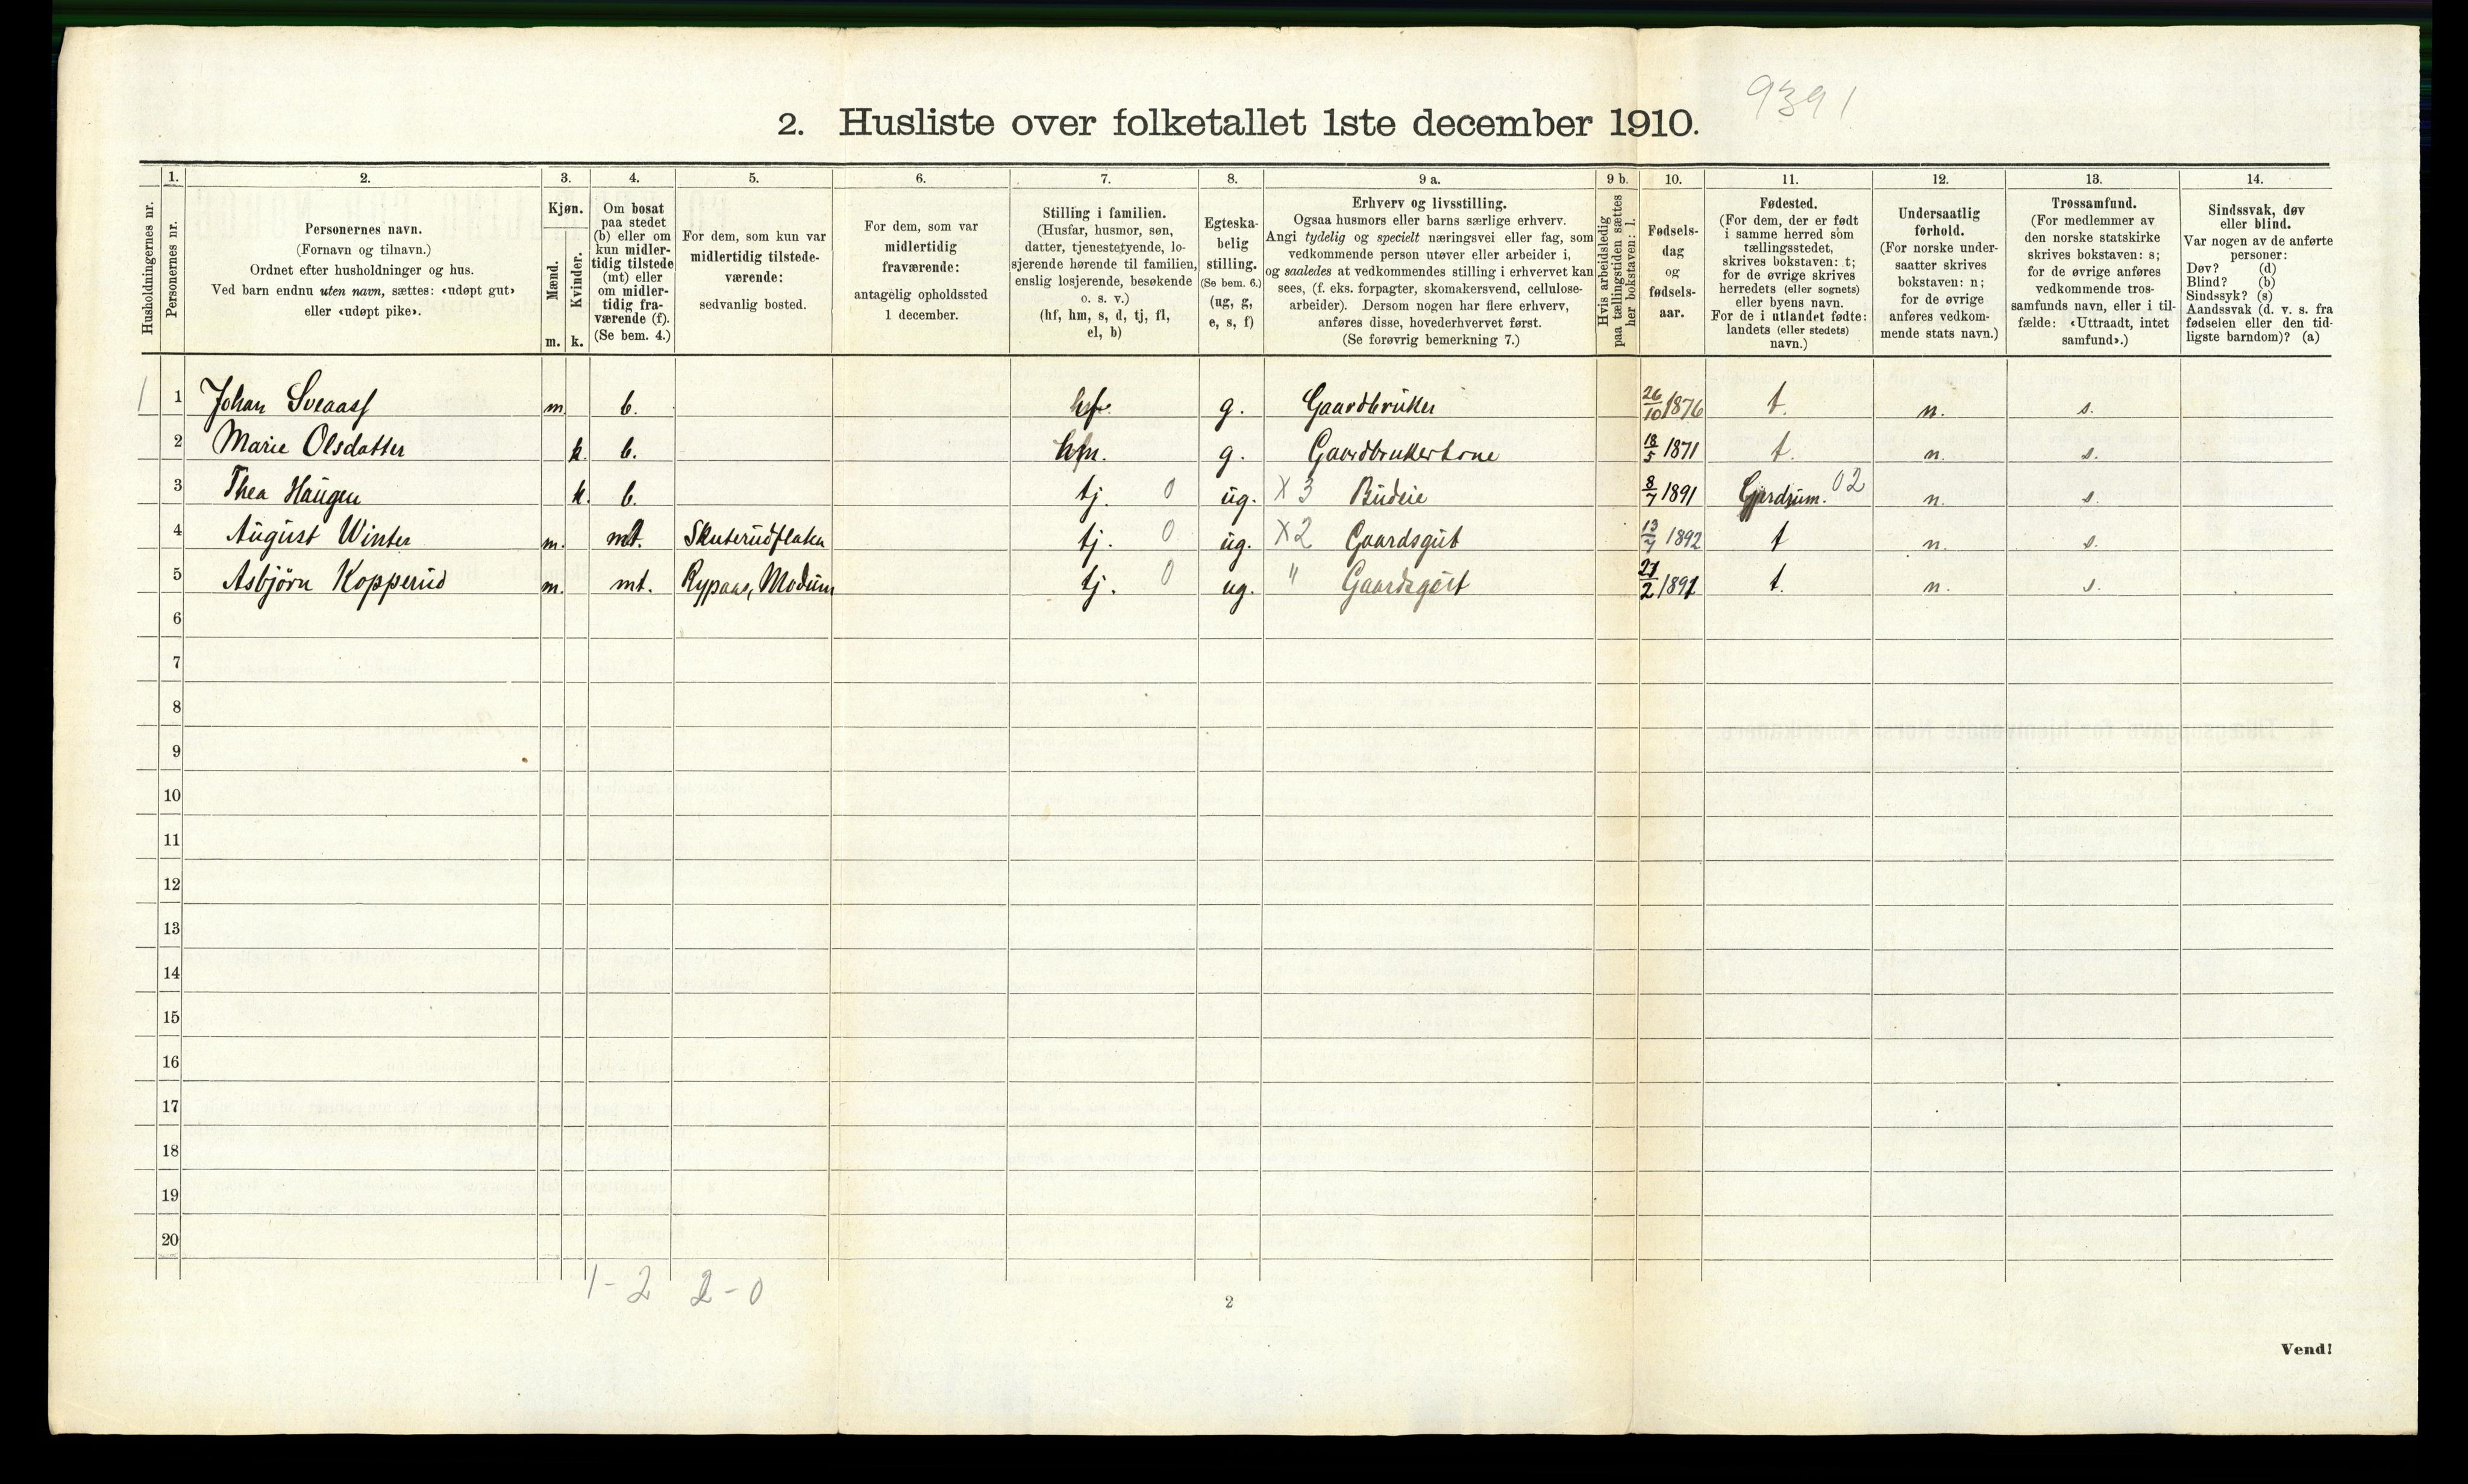 9391
2. Husliste over folketallet 1ste december 1910.
Husholdningernes nr.
1.
Personernes nr.
2.
Personernes navn.
(Fornavn og tilnavn.)
Ordnet efter husholdninger og hus.
Ved barn endnu uten navn, sættes: «udøpt gut»
eller «udøpt pike».
3.
Kjøn.
Mænd.
Kvinder.
m. k.
4.
Om bosat
paa stedet
(b) eller om
kun midler-
tidig tilstede
(mt) eller
om midler-
tidig fra-
værende (f).
(Se bem. 4.)
5.
For dem, som kun var
midlertidig tilstede-
værende:
sedvanlig bosted.
6.
For dem, som var
midlertidig
fraværende:
antagelig opholdssted
1 december.
7.
Stilling i familien.
(Husfar, husmor, søn,
datter, tjenestetyende, lo-
sjerende hørende til familien,
enslig losjerende, besøkende
o. s. v.)
(hf, hm, s, d, tj, fl,
el, b)
8.
Egteska-
belig
stilling.
(Se bem. 6.)
(ug, g,
e, s, f)
9 a.
Erhverv og livsstilling.
Ogsaa husmors eller barns særlige erhverv.
Angi tydelig og specielt næringsvei eller fag, som
vedkommende person utøver eller arbeider i,
og saaledes at vedkommendes stilling i erhvervet kan
sees, (f. eks. forpagter, skomakersvend, cellulose-
arbeider). Dersom nogen har flere erhverv,
anføres disse, hovederhvervet først.
(Se forøvrig bemerkning 7.)
9 b.
Hvis arbeidsledig
paa tællingstiden sættes
her bokstaven: l.
10.
Fødsels-
dag
og
fødsels-
aar.
11.
Fødested.
(For dem, der er født
i samme herred som
tællingsstedet,
skrives bokstaven: t;
for de øvrige skrives
herredets (eller sognets)
eller byens navn.
For de i utlandet fødte:
landets (eller stedets)
navn.)
12.
Undersaatlig
forhold.
(For norske under-
saatter skrives
bokstaven: n;
for de øvrige
anføres vedkom-
mende stats navn.)
13.
Trossamfund.
(For medlemmer av
den norske statskirke
skrives bokstaven: s;
for de øvrige anføres
vedkommende tros-
samfunds navn, eller i til-
fælde: «Uttraadt, intet
samfund».)
14.
Sindssvak, døv
eller blind.
Var nogen av de anførte
personer:
Døv? (d)
Blind? (b)
Sindssyk? (s)
Aandssvak (d. v. s. fra
fødselen eller den tid-
ligste barndom)? (a)
1 1 Johan Sveaass m. b. hf. g. Gaardbruker 26/10 1876 t. n. s.
2 Marie Olsdatter k. b. hm. g. Gaardbrukerkone 18/5 1871 t. n. s.
3 Thea Haugen k. b. tj. 0 ug. X 3 Budeie 8/7 1891 Gjerdrum. 02 n. s.
4 August Winter m. mt. Skuterudflaten tj. 0 ug. X 2 Gaardsgut 13/7 1892 t n. s.
5 Asbjörn Kopperud m. mt. Rypaas, Modum tj. 0 ug. " Gaardsgut /2 1891 t. n. s.
6
7
8
9
10
11
12
13
14
15
16
17
18
19
20
1 - 2 2 - 0
2
Vend!